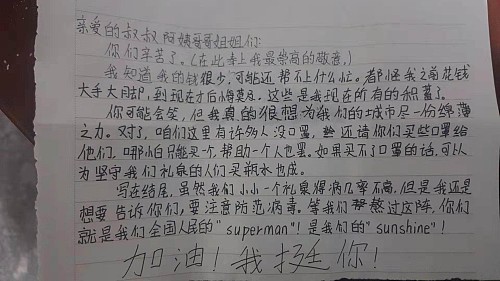 亲爱的叔叔阿姨哥哥姐姐们:
你们辛苦了。(在此奉上我最崇高的敬意。)
我知道我的钱很少,可能还帮不上什么忙。都怪我之前花钱
大手大脚,到现在才后悔莫及。这些是我现在所有的积蓄了。
你可能会笑,但我真的很想为我们的城市尽一份绵薄
之力。对了,咱们这里有许多人没口罩,还请你们买些口罩给
他们,哪怕只能买一个,帮助一个人也罢。如果买不了口罩的话,可以
为坚守我们礼泉的人们买瓶水也成。
写在结尾,虽然我们小小一个礼泉得病几率不高,但是我还是
想要告诉你们,要注意防范病毒。等我们熬过这阵,你们
就是我们全国人民的"superman"!是我们的"sunshine"!
加油!我挺你!